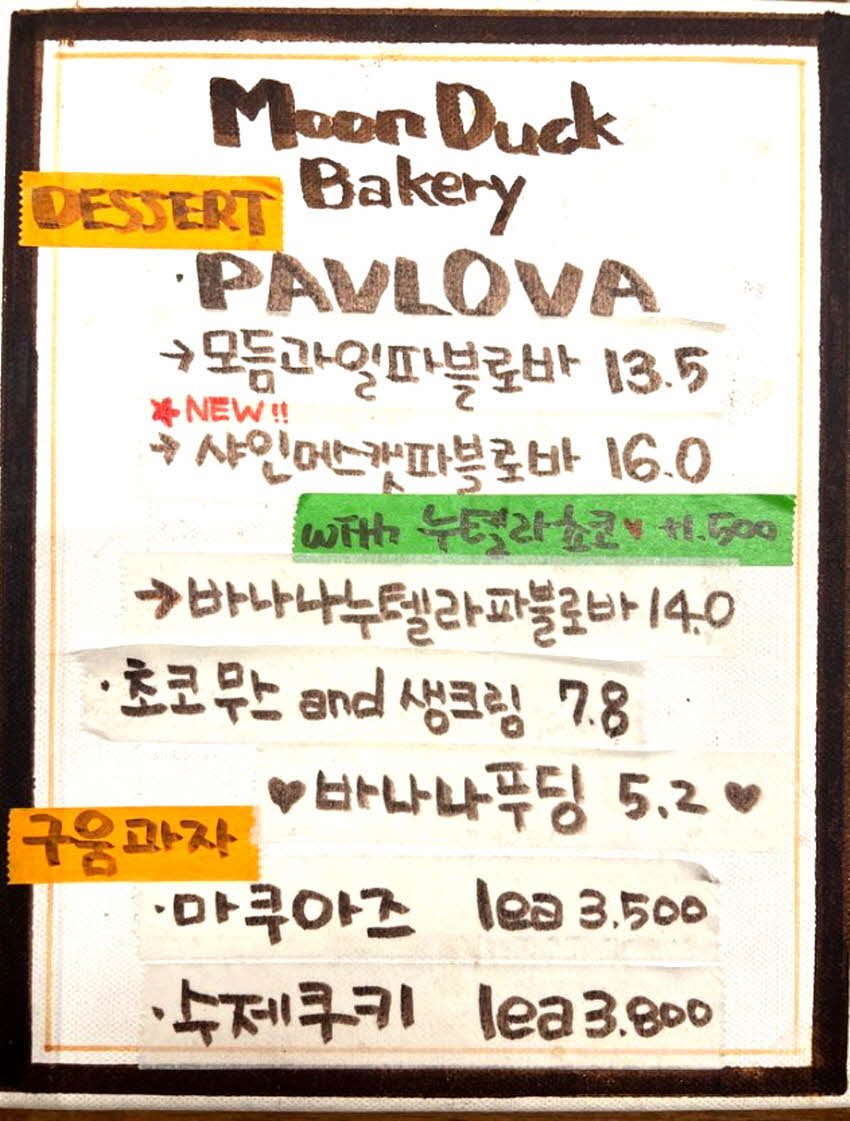 Moon Duck
Bakery
DESSERT
· PAVLOVA
→ 모듬과일파블로바 13.5
* NEW!!
→ 샤인머스캣파블로바 16.0
with 누텔라쵸코♥ +1.500
→ 바나나누텔라파블로바 14.0
· 초코무스 and 생크림 7.8
♥ 바나나푸딩 5.2 ♥
구움과자
· 마쿠아즈 1ea 3.500
· 수제쿠키 1ea 3.800